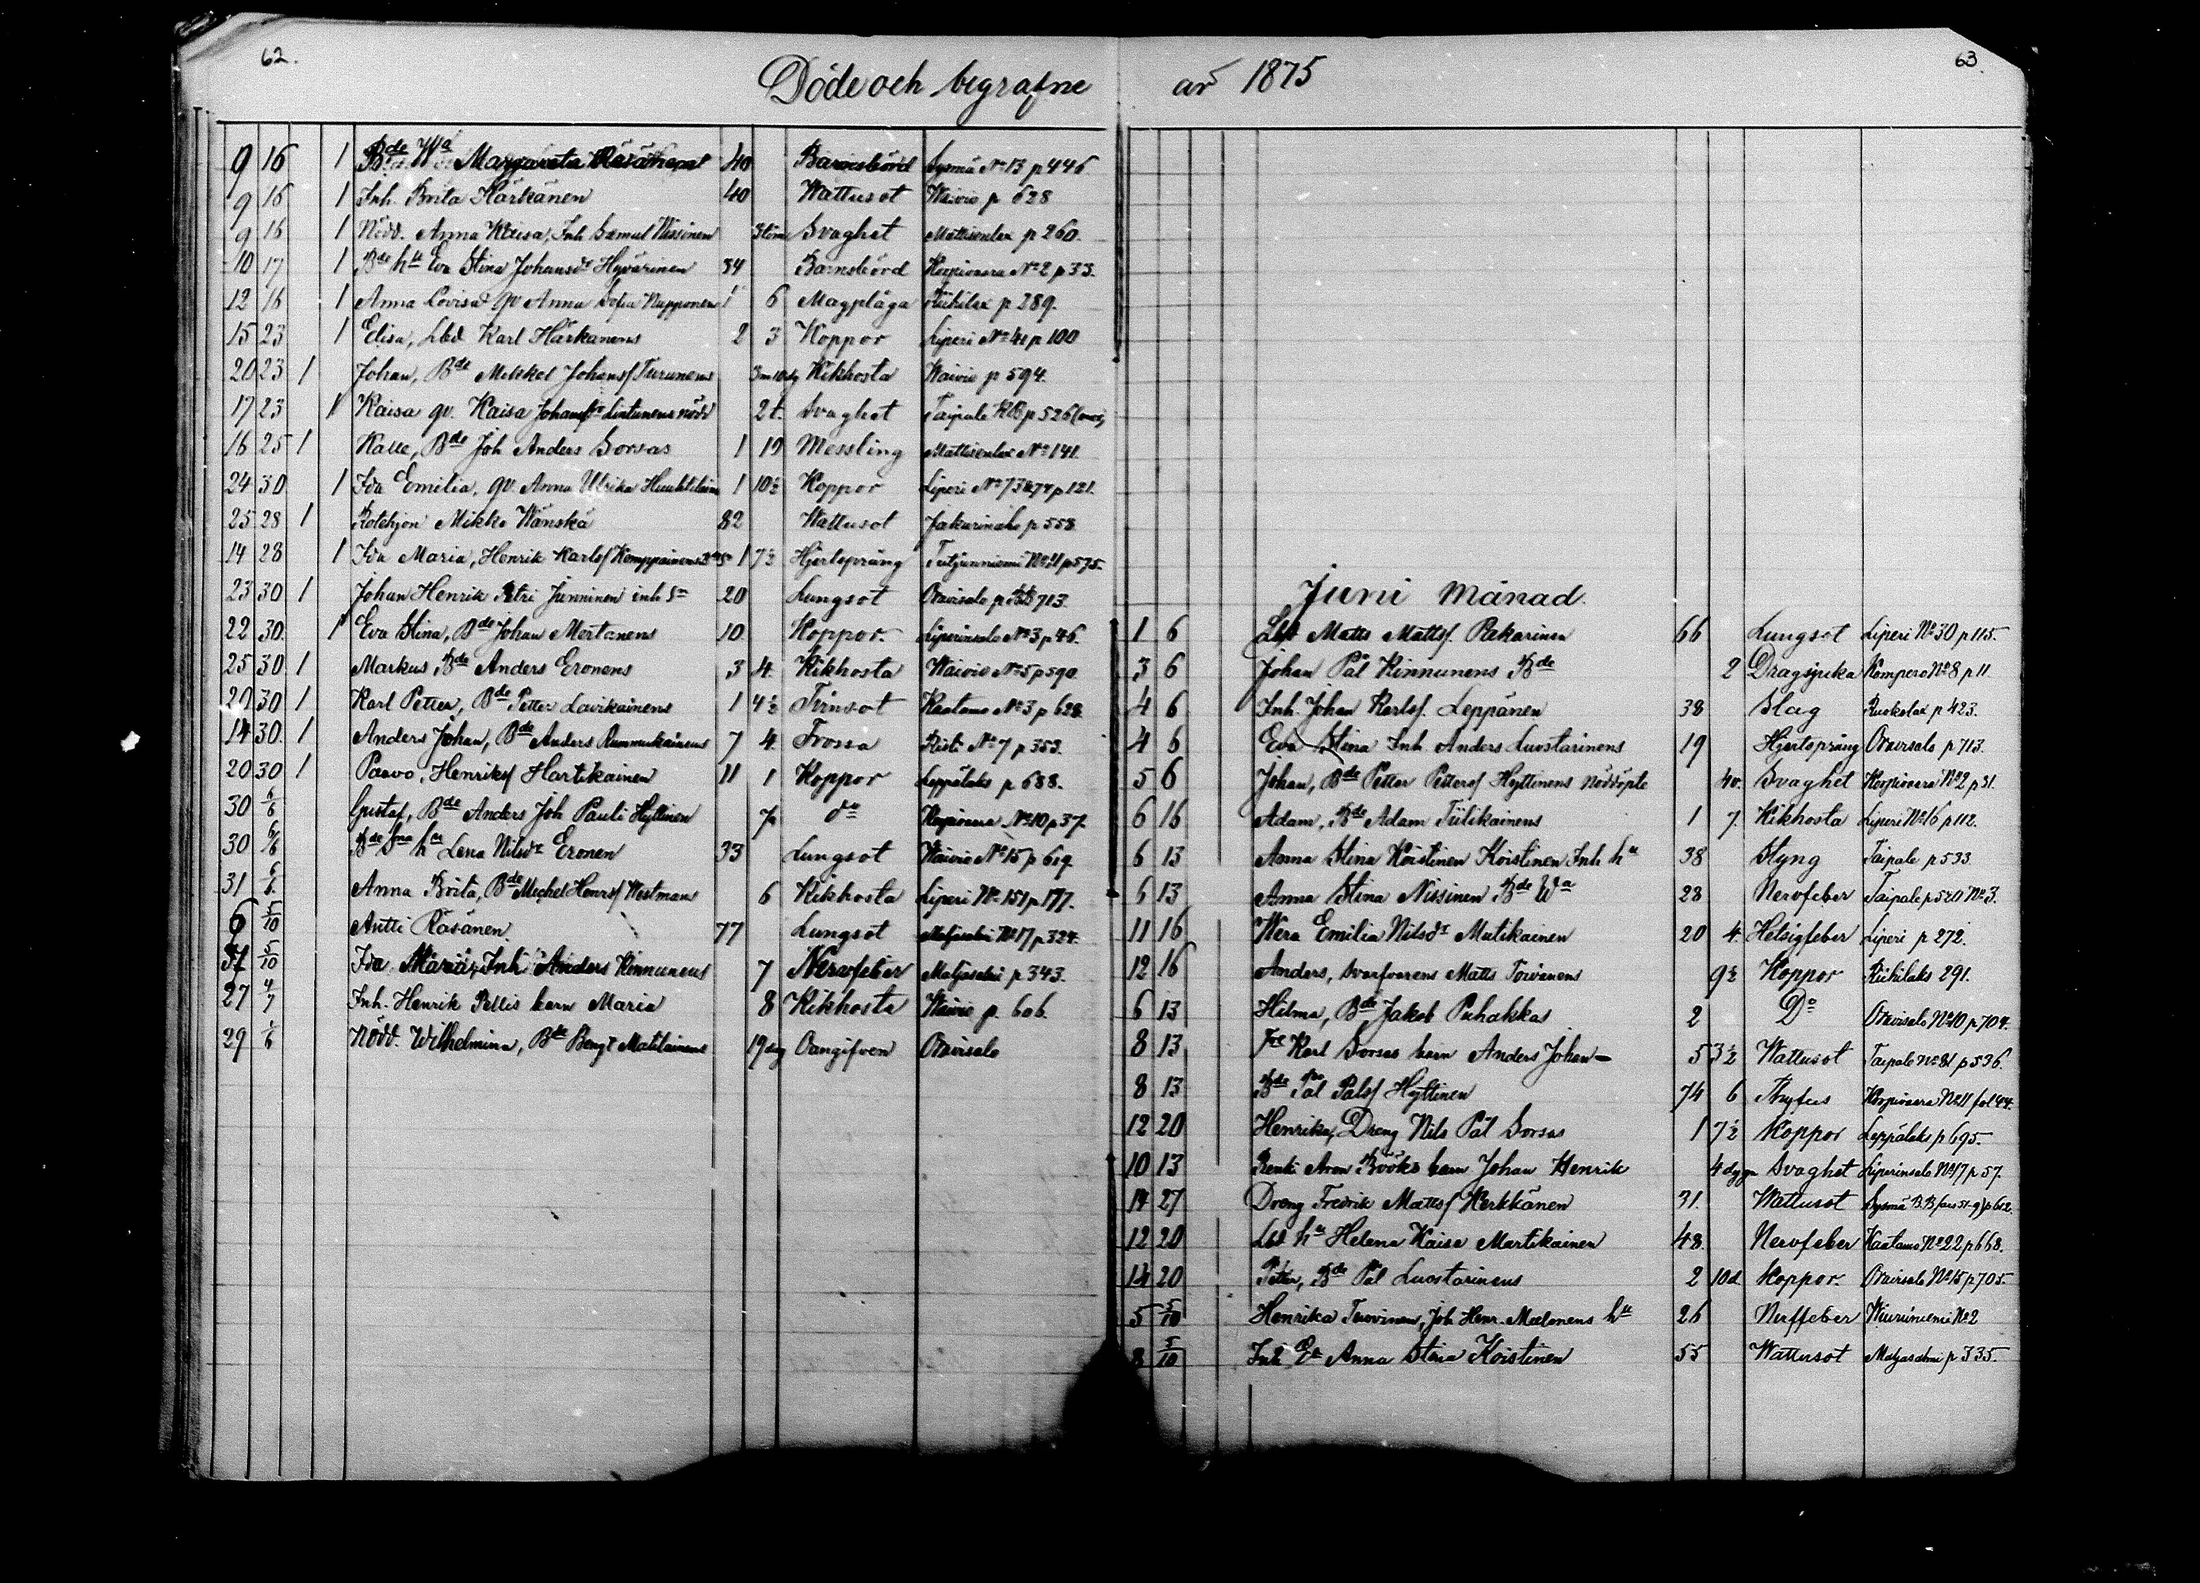 62.
63
Döde och begrafne år 1875
9 16 1 Bde Wa Margareta Räsänen 40 Barnsbörd Sysmä No 13 p 446
9 16 1 Inh. Brita Härkänen 40 Wattusot Waivio p 628
9 16 1 Nödd. Anna Kaisa, Inh Samul Nissinen 3 tim Svaghet Mattisenlax p 260.
10 17 1 Bde hu Eva Stina Johansdr Hyvärinen 34 Barnsbörd Korpivaara No 2 p 33.
12 16 1 Anna Lovisa qv Anna Sofia Nupponen 1 6 Magplåga Riihilax p 289.
15 23 1 Elisa, Lbd Karl Härkänens 2 3 Koppor Liperi No 41 p 100
20 23 1 Johan, Bde Mikkel Johansf Turunens 3 m Kikhosta Waivio p 594.
17 23 1 Kaisa qv. Kaisa Lintunens nödd 2 t. Svaghet Taipale p 526
16 25 1 Kalle, Bde Joh Anders Sorsas 1 19 Messling Mattisenlax No 141.
24 30 1 Ida Emilia, qv. Anna Ulrika 1 10½ Koppor Liperi No p 121.
25 28 1 Rotehjon Mikko Wänskä 82 Wattusot p 558
14 28 1 Ida Maria, Henrik Karlsf Komppainens 1 7½ Hjertsprång Tutjunniemi No 11 p 575.
23 30 1 Johan Henrik Petri Junninen inh Sn 20 Lungsot Oravisalo p 713.
22 30. 1 Eva Stina, Bde Johan Mertanens 10 Koppor. Liperinsalo No 3 p 46.
25 30 1 Markus Bde Anders Eronens 3 4. Kikhosta Waivio No 5 p 590
29 30 1 Karl Petter, Bde Petter Lavikainens 1 4½ Tvinsot Kaatamo No 3 p 628.
14 30. 1 Anders Johan, Bde Anders Rummukainens 7 4. Frossa Risti No 7 p 353.
20 30 1 Paavo, Henriksf Hartikainen 11 1 Koppor Leppälaks p 688.
30 6/6 Gustaf, Bde Anders Joh Pauli Hyttinen 7 do Korpivaara No 10 p 37.
30 6/6 Bde hu Lena Nilsdr Eronen 33 Lungsot Waivio No 15 p 619.
31 6/6. Anna Brita, Bde Michel Henrsf Westmans 6 Kikhosta Liperi No 151 p 177.
6 5/10 Antti Räsänen 77 Lungsot No 17 p 324.
31 5/10 Ida Maria, Inh Anders Kinnunens 7 Nervfeber Maljasalmi p 343.
27 4/7 Inh. Henrik Pellis barn Maria 8 Kikhosta Waivio p. 606.
29 1/6 Nödd. Wilhelmina, Bde Bengt Matilainens 19 dag Oangifven Oravisalo
Juni månad.
1 6 Lbd Matts Mattsf. Pekarinen 66 Lungsot Liperi No 30 p 115.
3 6 Johan Pål Kinnunens Bde 2 Dragsjuka Kompero No 8 p 11.
4 6 Inh. Johan Karlsf. Leppänen 38 Slag Ruokolax p 423.
4 6 Eva Stina Inh Anders Luostarinens 19 Hjertsprång Oravisalo p 713.
5 6 Johan, Bde Petter Pettersf Hyttinens Nöddöpte 4 v. Svaghet Korpivaara No 2 p 31.
6 16 Adam, Bde Adam Tiilikainens 1 7. Kikhosta Liperi No 16 p 112.
6 13 Anna Stina Koistinen Koistinen Inh hu 38 Styng Taipale p 533
6 13 Anna Stina Nissinen Bde Wa 28 Nervfeber Taipale p 520 No 3.
11 16 Wera Emilia Nilsdr Mutikainen 20 4. Hetsigfeber Liperi p 272.
12 16 Anders, Svarfvarens Matts Toivanens 9½ Koppor Riihilaks 291.
6 13 Hilma, Bde Jakob Puhakkas 2 Do Oravisalo No 10 p 704.
8 13 Karl Sorsas barn Anders Johan 5 3½ Wattusot Taipale No 81 p 536.
8 13 Bde Pål Pålsf Hyttinen 74 6 Thyfus Korpivaara No 11 fol 44.
12 20 Henrika, Dreng Nils Pål Sorsas 1 7½ Koppor Leppälaks p 695.
10 13 Renki Aron Bööks barn Johan Henrik 4 dygn Svaghet Liperinsalo No 17 p 57.
14 27 Dreng Fredrik Mattsf Kerkkänen 31. Wattusot Sysmä p 612.
12 20 Lbd hu Helena Kaisa Martikainen 48. Nervfeber Kaatamo No 22 p 668.
14 20 Petter, Bde Pål Luostarinens 2 10 d. Koppor. Oravisalo No 15 p 705
5 5/10 Henrika Toivinen, Joh Henr. Mielonens hu 26 Nerffeber Wiiriniemi No 2
8 5/10 Inh Ea Anna Stina Koistinen 55 Wattusot Maljasalmi p 335.